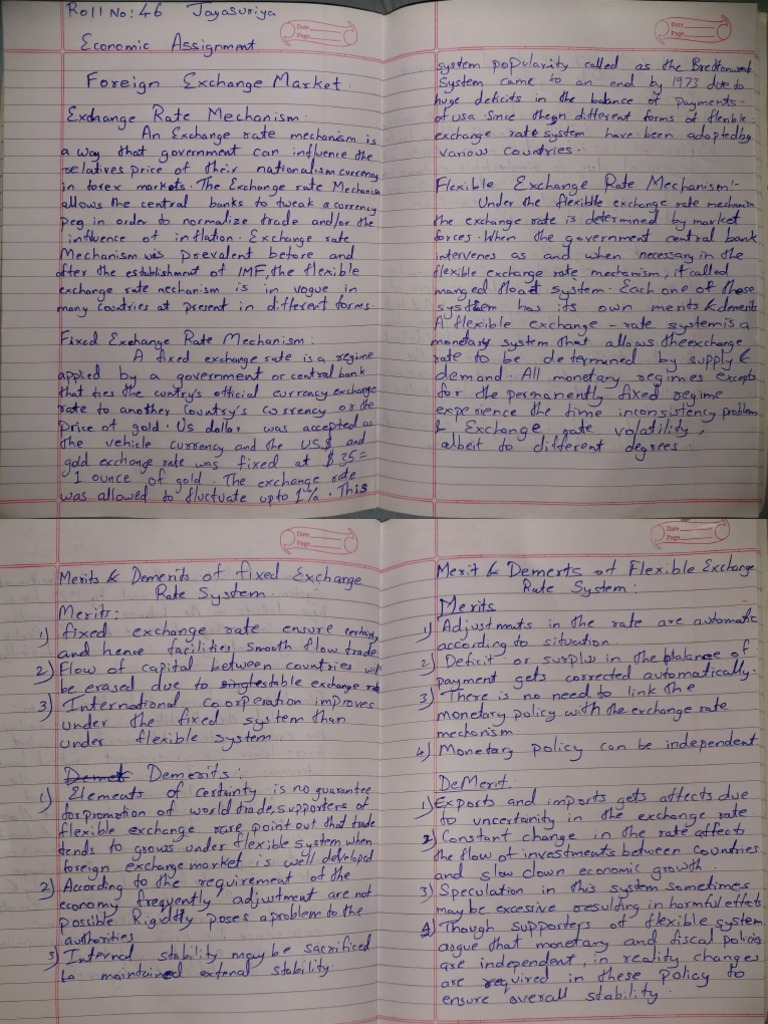 Roll No: 46 Jayasuriya
Date
Page
Economic Assignment
Foreign Exchange Market.
Exchange Rate Mechanism:
An Exchange rate mechanism is
a way that government can influence the
relatives price of their nationalism currency
in forex markets. The Exchange rate Mechanism
allows the central banks to tweak a currency
peg in order to normalize trade and/or the
influence of inflation. Exchange rate
Mechanism was prevalent before and
after the establishment of IMF, the flexible
exchange rate mechanism is in vogue in
many Countries at present in different forms.
Fixed Exchange Rate Mechanism:
A fixed exchange rate is a regime
applied by a government or central bank
that ties the contry's official currency exchange
rate to another Country's currency or the
price of gold. Us dollar was accepted as
the vehicle currency and the US$ and
gold exchange rate was fixed at $35=
1 ounce of gold. The exchange rate
was allowed to fluctuate upto 1%. This
Date
Page
system popularity called as the Brettonwood
System came to an end by 1973 due to
huge deficits in the balance of payments
of usa since then different forms of flexible
exchange rate system have been adapted by
various countries.
Flexible Exchange Rate Mechanism:-
Under the flexible exchange rate mechanism
the exchange rate is determined by market
forces. When the government central bank
intervenes as and when necessary in the
flexible exchange rate mechanism, it called
manged float system. Each one of these
system has its own merits & demerits
A flexible exchange-rate system is a
monetary system that allows the exchange
rate to be determined by supply &
demand. All monetary regimes except
for the permanently fixed regime
experience the time inconsistency problem
& Exchange gate volatility,
albeit to different degrees.
Date
Page
Merits & Demerits of fixed Exchange
Rate System
Merits:
1) fixed exchange rate ensure certainty
and hence facilities smooth flow trade
2) Flow of capital between countries will
be erased due to stable exchange rate
3) International co operation improves
under the fixed system than
under flexible system
Demerits:
1) Elements of certainty is no guarantee
for promotion of world trade, supporters of
flexible exchange rare point out that trade
tends to grows under flexible system when
foreign exchange market is well developed
2) According to the requirement of the
economy frequently adjustment are not
possible Rigidity poses a problem to the
authorities
3) Internal stability may be sacrificed
to maintained extenal stability
Date
Page
Merit & Demerts of Flexible Exchange
Rate System:
Merits
1) Adjustments in the rate are automatic
according to situation
2) Deficit or surplus in the balance of
payment gets corrected automatically.
3) There is no need to link the
monetary policy with the exchange rate
mechonism
4) Monetary policy can be independent
DeMerit.
1) Exports and imports gets affects due
to uncertainity in the exchange rate
2) Constant change in the rate affects
the flow of investments between countries
and slow down economic growth.
3) Speculation in this system sometimes
may be excessive resulting in harmful effects.
4) Though supporters of flexible system
argue that monetary and fiscal policies
are independent, in reality changes
are required in these policy to
ensure overall stability.